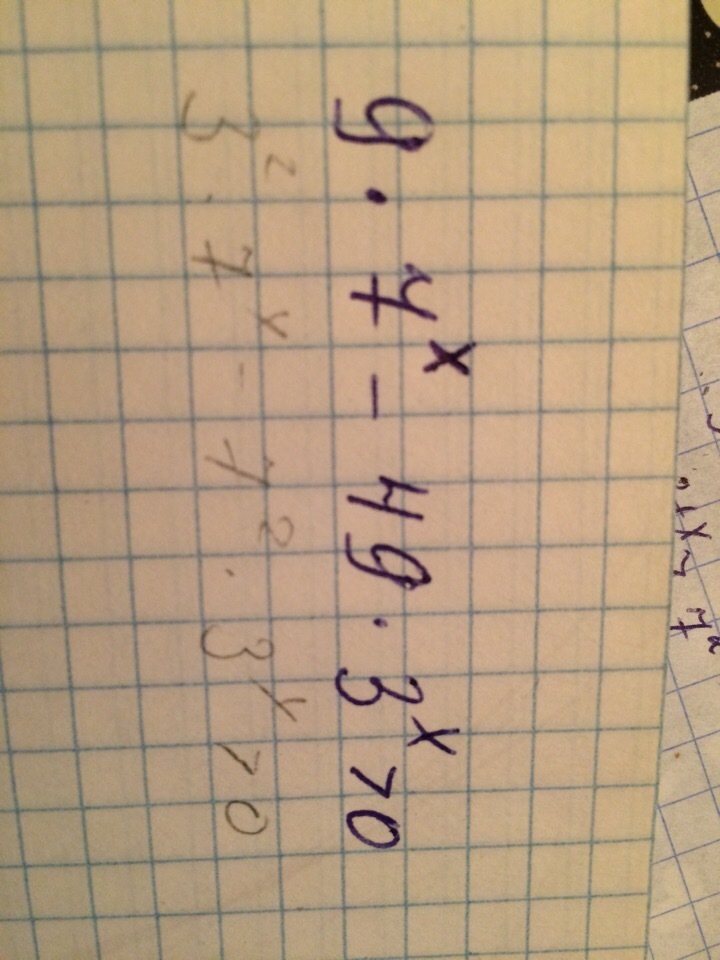 9 · 7^x - 49 · 3^x > 0
3^2 · 7^x - 7^2 · 3^x > 0